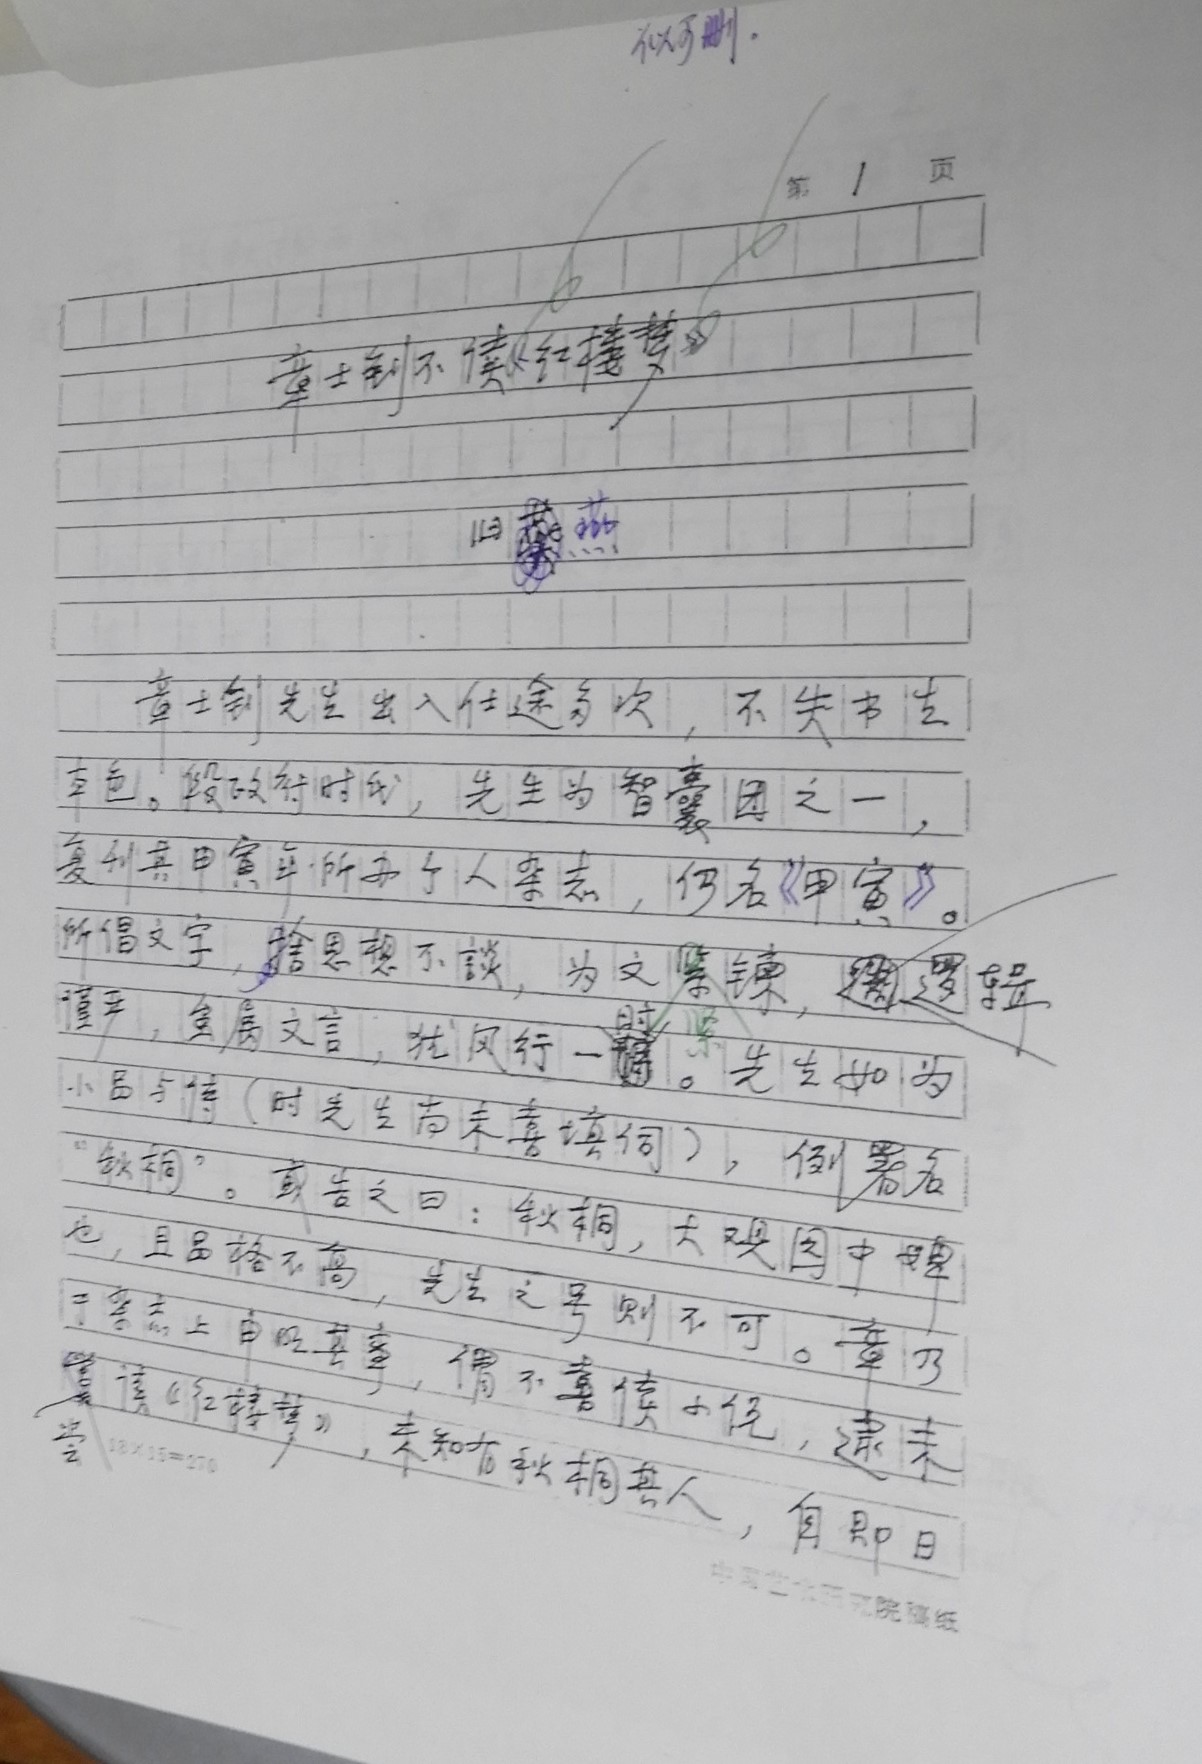 似可删.
第 1 页
章士钊不读《红楼梦》
旧燕
章士钊先生出入仕途多次，不失书生
本色。段政府时代，先生为智囊团之一，
复刊其甲寅年所办个人杂志，仍名《甲寅》。
所倡文字，捨思想不談，为文紧鍊，邏辑
谨严，全属文言，犹风行一时。先生如为
小品与诗（时先生尚未喜填词），例署名
“秋桐”。或告之曰：秋桐，大观园中婢
也，且品格不高，先生之号则不可。章乃
于杂志上自记其事，谓不喜读小说，逮未
尝读《红楼梦》，未知有秋桐其人，自即日
18×15=270
中国艺术研究院稿纸